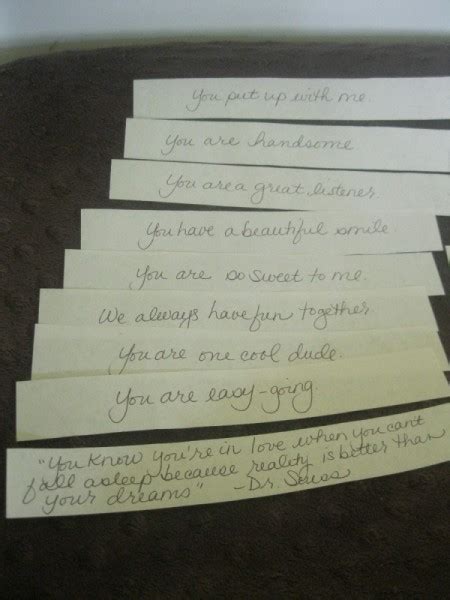 You put up with me.
You are handsome
You are a great listener
You have a beautiful smile.
You are so sweet to me.
We always have fun together
You are one cool dude.
You are easy-going.
"You know you're in love when you can't
fall asleep because reality is better than
your dreams" -Dr. Seuss